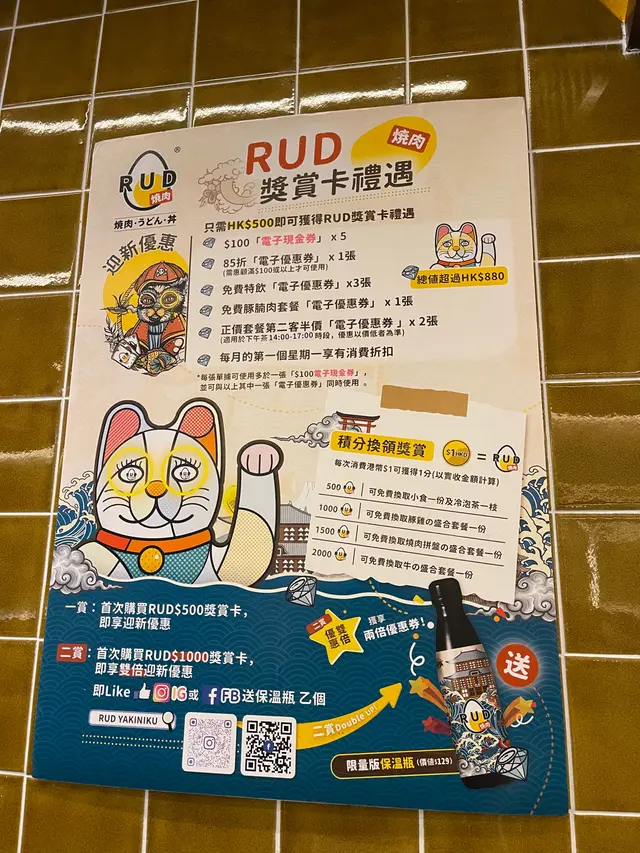 RUD
®
燒肉
燒肉·うどん·丼
RUD
燒肉
獎賞卡禮遇
只需HK$500即可獲得RUD獎賞卡禮遇
迎新優惠
$100「電子現金券」x 5
85折「電子優惠券」x 1張
(需惠顧滿$100或以上才可使用)
免費特飲「電子優惠券」x3張
免費豚腩肉套餐「電子優惠券」x 1張
正價套餐第二客半價「電子優惠券」x 2張
(適用於下午茶14:00-17:00時段，優惠以價低者為準)
每月的第一個星期一享有消費折扣
總值超過HK$880
*每張單據可使用多於一張「$100電子現金券」，
並可與以上其中一張「電子優惠券」同時使用。
積分換領獎賞
$1HKD
=
RUD
燒肉
每次消費港幣$1可獲得1分(以實收金額計算)
500 可免費換取小食一份及冷泡茶一枝
1000 可免費換取豚雞の盛合套餐一份
1500 可免費換取燒肉拼盤の盛合套餐一份
2000 可免費換取牛の盛合套餐一份
一賞：首次購買RUD$500獎賞卡，
即享迎新優惠
二賞：首次購買RUD$1000獎賞卡，
即享雙倍迎新優惠
即Like IG或 FB送保溫瓶 乙個
RUD YAKINIKU
二賞
優雙
惠倍
獲享
兩倍優惠券!
二賞Double up!
送
RUD
燒肉
限量版保溫瓶(價值$129)